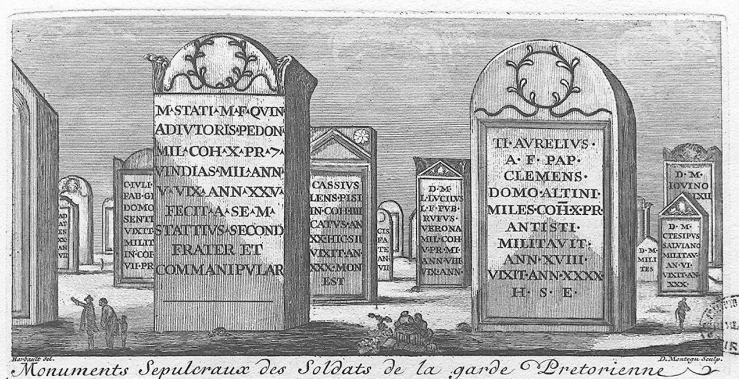 M·STATI·M·F·QVIN
ADIVTORIS·PEDON
MIL·COH·X·PR·7·
VINDIAS·MIL·ANN
V·VIX·ANN·XXV·
FECIT·A·SE·M·
STATTIVS·SECOND
FRATER ET
COMMANIPVLAR
C·IVLI
FAB·GE
DOMO
SENTI
VIXIT
MILIT
IN·CO
VII·PR
CASSIVS
LENS·PISI
IN·COH·IIII
CATVS·AN
XX·HIC·SII
VIXIT·AN
XXX·MON
EST
CIS
FA
TE
AN
VII
D·M·
L·LVCILVS
L·F·PVB·
RVFVS
VERONA
MIL·COH
V·PR·MI
ANN·VIII
VIX·ANN·
TI·AVRELIVS·
A·F·PAP·
CLEMENS
DOMO·ALTINI
MILES·COH·X·PR
ANTISTI·
MILITAVIT·
ANN·XVIII
VIXIT·ANN·XXXX
H·S·E·
D·M·
MILI
TES
D·M·
IOVINO
XII
D·M·
CTESIPVS
SALVIANO
MILITAV·
AN·VI·
VIXIT·AN·
XXX·
Barbault del.
D. Montegu Sculp.
Monuments Sepulcraux des Soldats de la garde Pretorienne